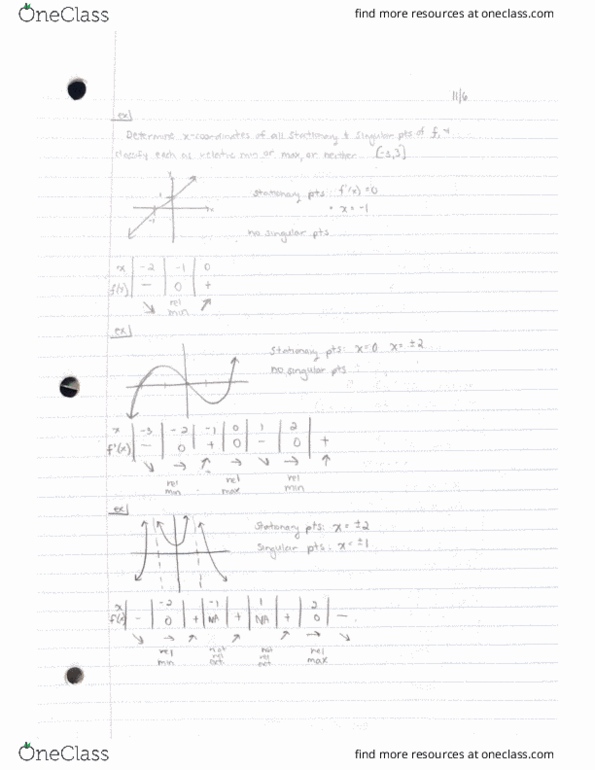 OneClass
find more resources at oneclass.com
11/6
ex)
Determine x-coordinates of all stationary + singular pts of f, +
classify each as relative min or max, or neither. [-3,3]
y
stationary pts: f'(x)=0
x = -1
x
-1
no singular pts
x -2 -1 0
f'(x) − 0 +
↘ rel min ↗
ex)
stationary pts: x=0 x=±2
no singular pts
x -3 -2 -1 0 1 2
f'(x) − 0 + 0 − 0 +
↘ → ↗ → ↘ → ↑
rel min rel max rel min
ex)
stationary pts: x=±2
singular pts: x=±1
x -2 -1 1 2
f'(x) − 0 + NA + NA + 0 −
↘ → ↗ ↗ ↗ → ↘
rel min not rel ext. not rel ext. rel max
OneClass
find more resources at oneclass.com